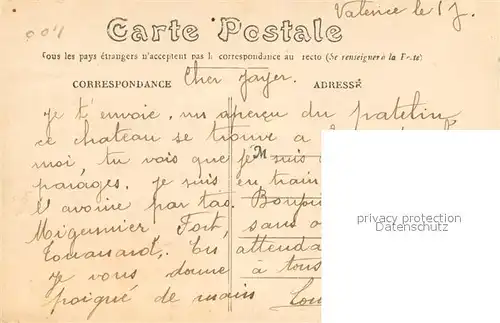 004
Valence le 1 J.
Carte Postale
Tous les pays étrangers n'acceptent pas la correspondance au recto (Se renseigner à la Poste)
CORRESPONDANCE Cher Jayer. ADRESSE
Je t'envoie, un aperçu du patelin
ce chateau se trouve a
moi, tu vois que je M suis
parages, je suis en train
d'avoine par tas.
Migennier Fort, sans
En attenda
Je vous donne à tous
poigné de main
privacy protection
Datenschutz